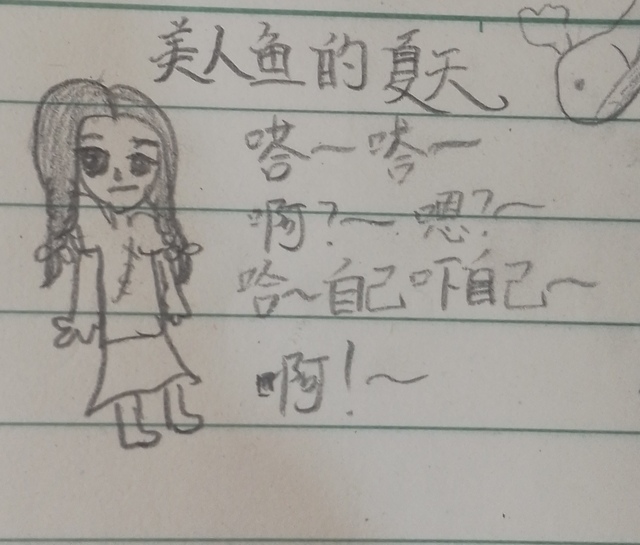 美人鱼的夏天
嗒～嗒～
啊?～嗯?～
哈～自己吓自己～
啊!～